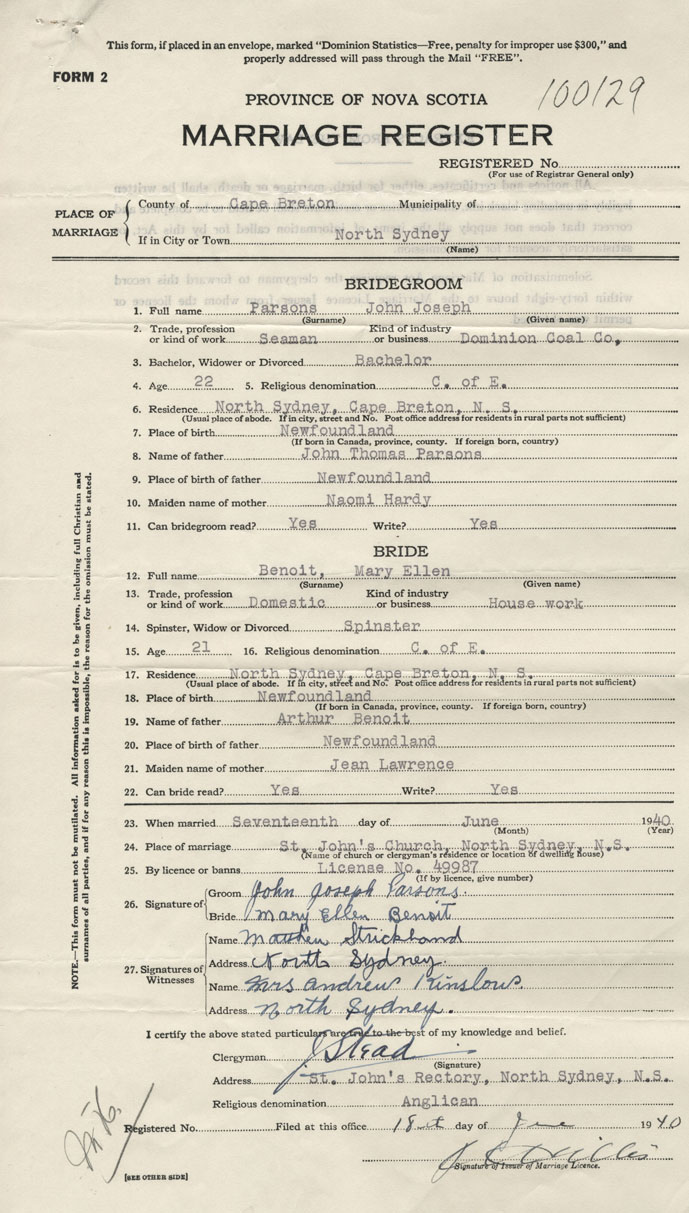 This form, if placed in an envelope, marked "Dominion Statistics—Free, penalty for improper use $300," and
properly addressed will pass through the Mail "FREE".
FORM 2
100129
PROVINCE OF NOVA SCOTIA
MARRIAGE REGISTER
REGISTERED No.
(For use of Registrar General only)
PLACE OF MARRIAGE
County of Cape Breton Municipality of
If in City or Town North Sydney
(Name)
BRIDEGROOM
1. Full name Parsons John Joseph
(Surname) (Given name)
2. Trade, profession or kind of work Seaman Kind of industry or business Dominion Coal Co.
3. Bachelor, Widower or Divorced Bachelor
4. Age 22 5. Religious denomination C. of E.
6. Residence North Sydney, Cape Breton, N. S.
(Usual place of abode. If in city, street and No. Post office address for residents in rural parts not sufficient)
7. Place of birth Newfoundland
(If born in Canada, province, county. If foreign born, country)
8. Name of father John Thomas Parsons
9. Place of birth of father Newfoundland
10. Maiden name of mother Naomi Hardy
11. Can bridegroom read? Yes Write? Yes
BRIDE
12. Full name Benoit, Mary Ellen
(Surname) (Given name)
13. Trade, profession or kind of work Domestic Kind of industry or business House work
14. Spinster, Widow or Divorced Spinster
15. Age 21 16. Religious denomination C. of E.
17. Residence North Sydney, Cape Breton, N. S.
(Usual place of abode. If in city, street and No. Post office address for residents in rural parts not sufficient)
18. Place of birth Newfoundland
(If born in Canada, province, county. If foreign born, country)
19. Name of father Arthur Benoit
20. Place of birth of father Newfoundland
21. Maiden name of mother Jean Lawrence
22. Can bride read? Yes Write? Yes
23. When married Seventeenth day of June 1940
(Month) (Year)
24. Place of marriage St. John's Church, North Sydney, N.S.
(Name of church or clergyman's residence or location of dwelling house)
25. By licence or banns License No. 49987
(If by licence, give number)
26. Signature of
Groom John Joseph Parsons.
Bride Mary Ellen Benoit
27. Signatures of Witnesses
Name Matthew Strickland
Address North Sydney.
Name Mrs Andrew Kinslow.
Address North Sydney.
I certify the above stated particulars are true to the best of my knowledge and belief.
Clergyman J Stead
(Signature)
Address St. John's Rectory, North Sydney, N.S.
Religious denomination Anglican
Registered No. Filed at this office 18 day of June 1940
Signature of Issuer of Marriage Licence.
[SEE OTHER SIDE]
NOTE.—This form must not be mutilated. All information asked for is to be given, including full Christian and
surnames of all parties, and if for any reason this is impossible, the reason for the omission must be stated.